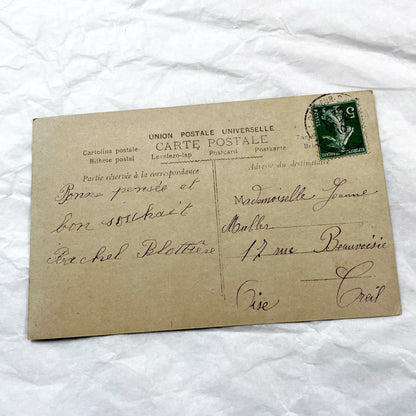 UNION POSTALE UNIVERSELLE
CARTE POSTALE
Cartolina postale Levelezo-lap Postcard Postkarte
Bilhete postal
Partie réservée à la correspondance
Adresse du destinataire
5
Bonne pensée et
bon souhait
Rachel
Mademoiselle Jeanne
Muller
12 rue Beauvoisie
Creil
Oise